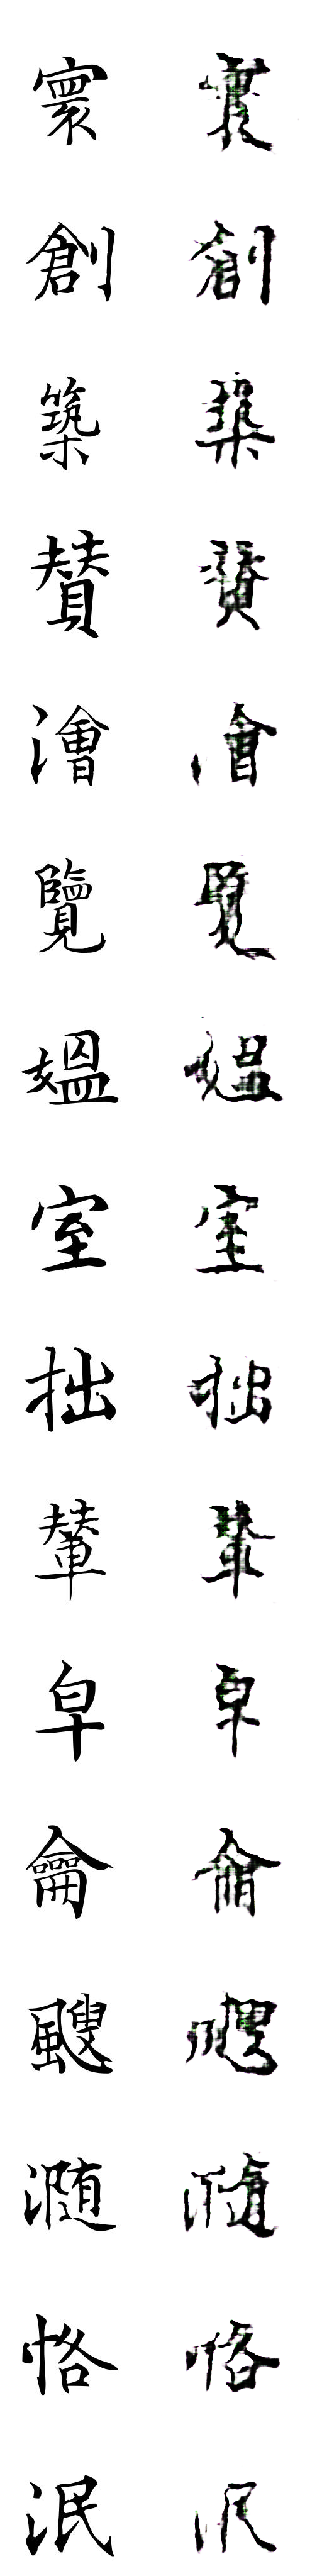 寰 寰
創 創
築 築
賛 賛
澮 澮
覽 覽
媼 媼
室 室
拙 拙
輦 輦
皁 皁
龠 龠
颼 颼
瀡 瀡
恪 恪
泯 泯